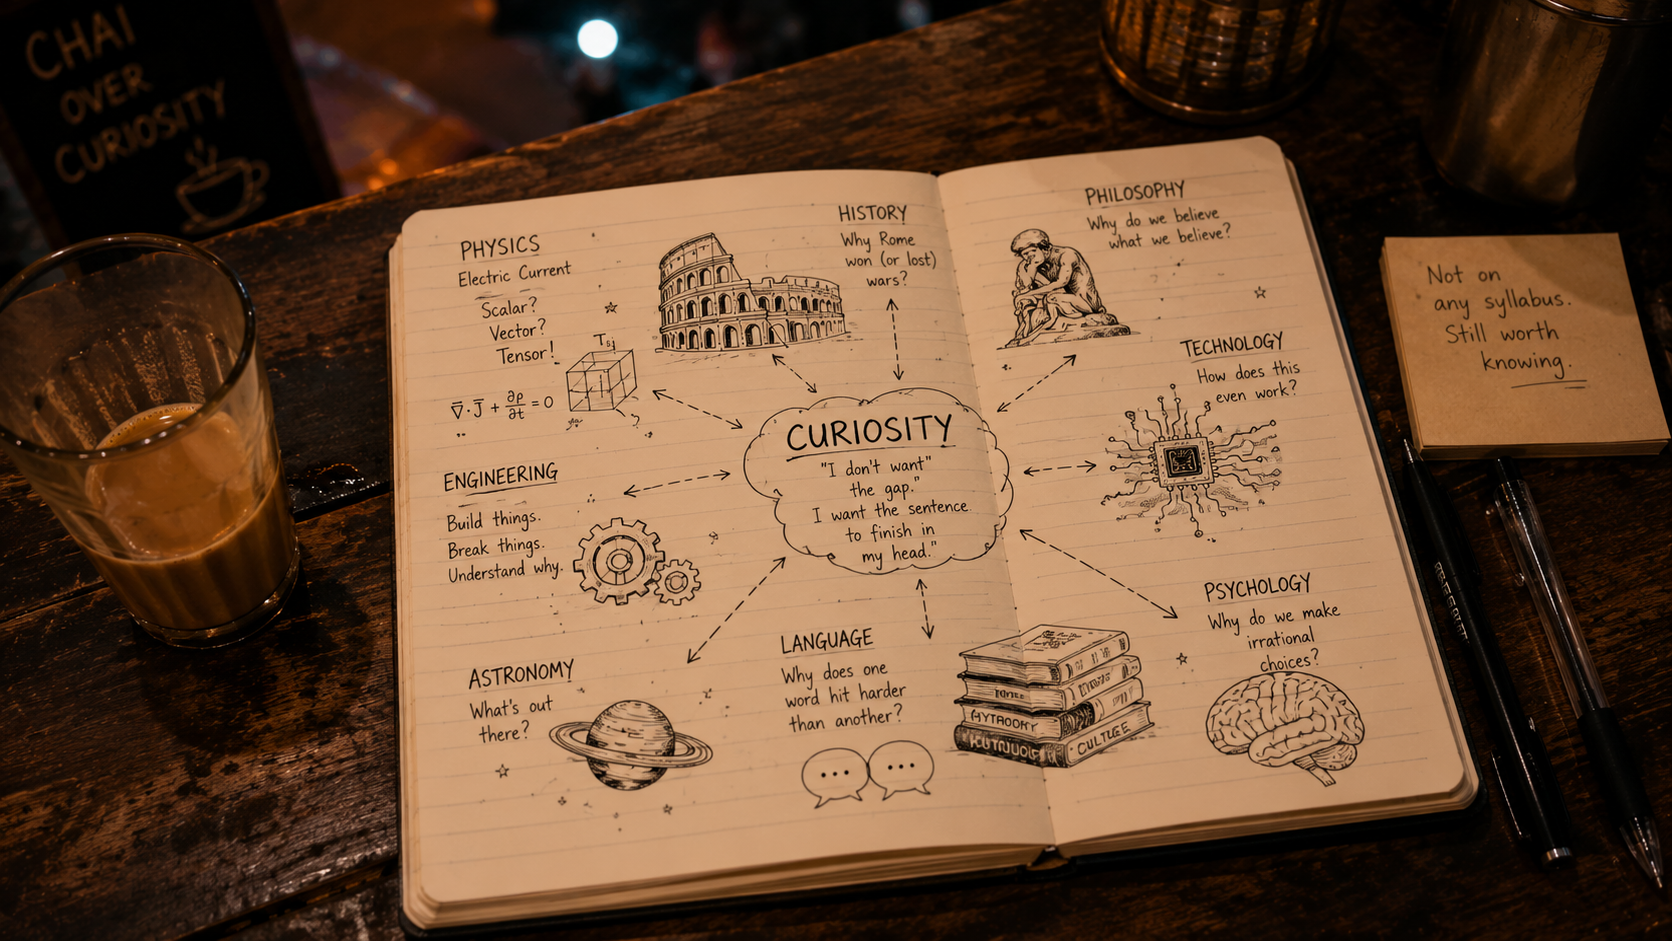 CHAI
OVER
CURIOSITY
PHYSICS
Electric Current
Scalar?
Vector?
Tensor!
T_ij
∇·J + ∂ρ/∂t = 0
?
HISTORY
Why Rome
won (or lost)
wars?
PHILOSOPHY
Why do we believe
what we believe?
TECHNOLOGY
How does this
even work?
CURIOSITY
"I don't want"
the gap."
I want the sentence
to finish in
my head."
ENGINEERING
Build things.
Break things.
Understand why.
ASTRONOMY
What's out
there?
LANGUAGE
Why does one
word hit harder
than another?
... ...
CULTUCE
PSYCHOLOGY
Why do we make
irrational
choices?
Not on
any syllabus.
Still worth
knowing.